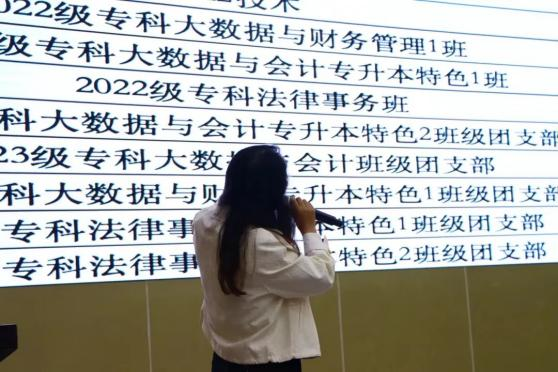 技术
022级专科大数据与财务管理1班
级专科大数据与会计专升本特色1班
2022级专科法律事务班
科大数据与会计专升本特色2班级团支部
23级专科大数据 会计班级团支部
科大数据与财 专升本特色1班级团支部
专科法律事 本特色1班级团支部
专科法律事 本特色2班级团支部